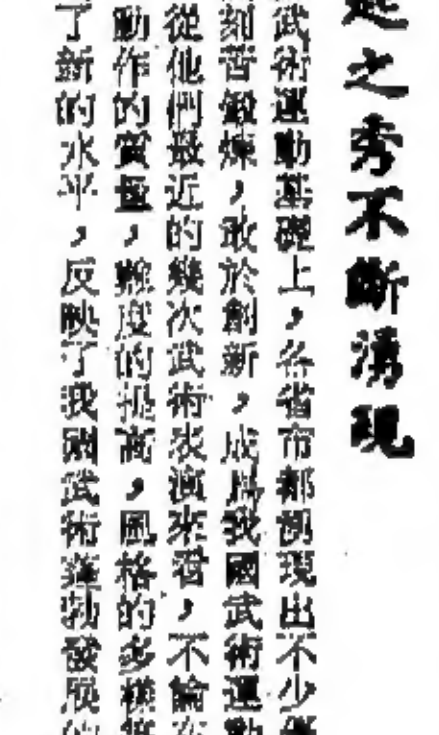 起之秀不斷湧現
武術運動基礎上，各省市都湧現出不少
刻苦鍛煉，敢於創新，成爲我國武術運動
從他們最近的幾次武術表演來看，不論在
動作的質量，難度的提高，風格的多樣
了新的水平，反映了我國武術蓬勃發展的